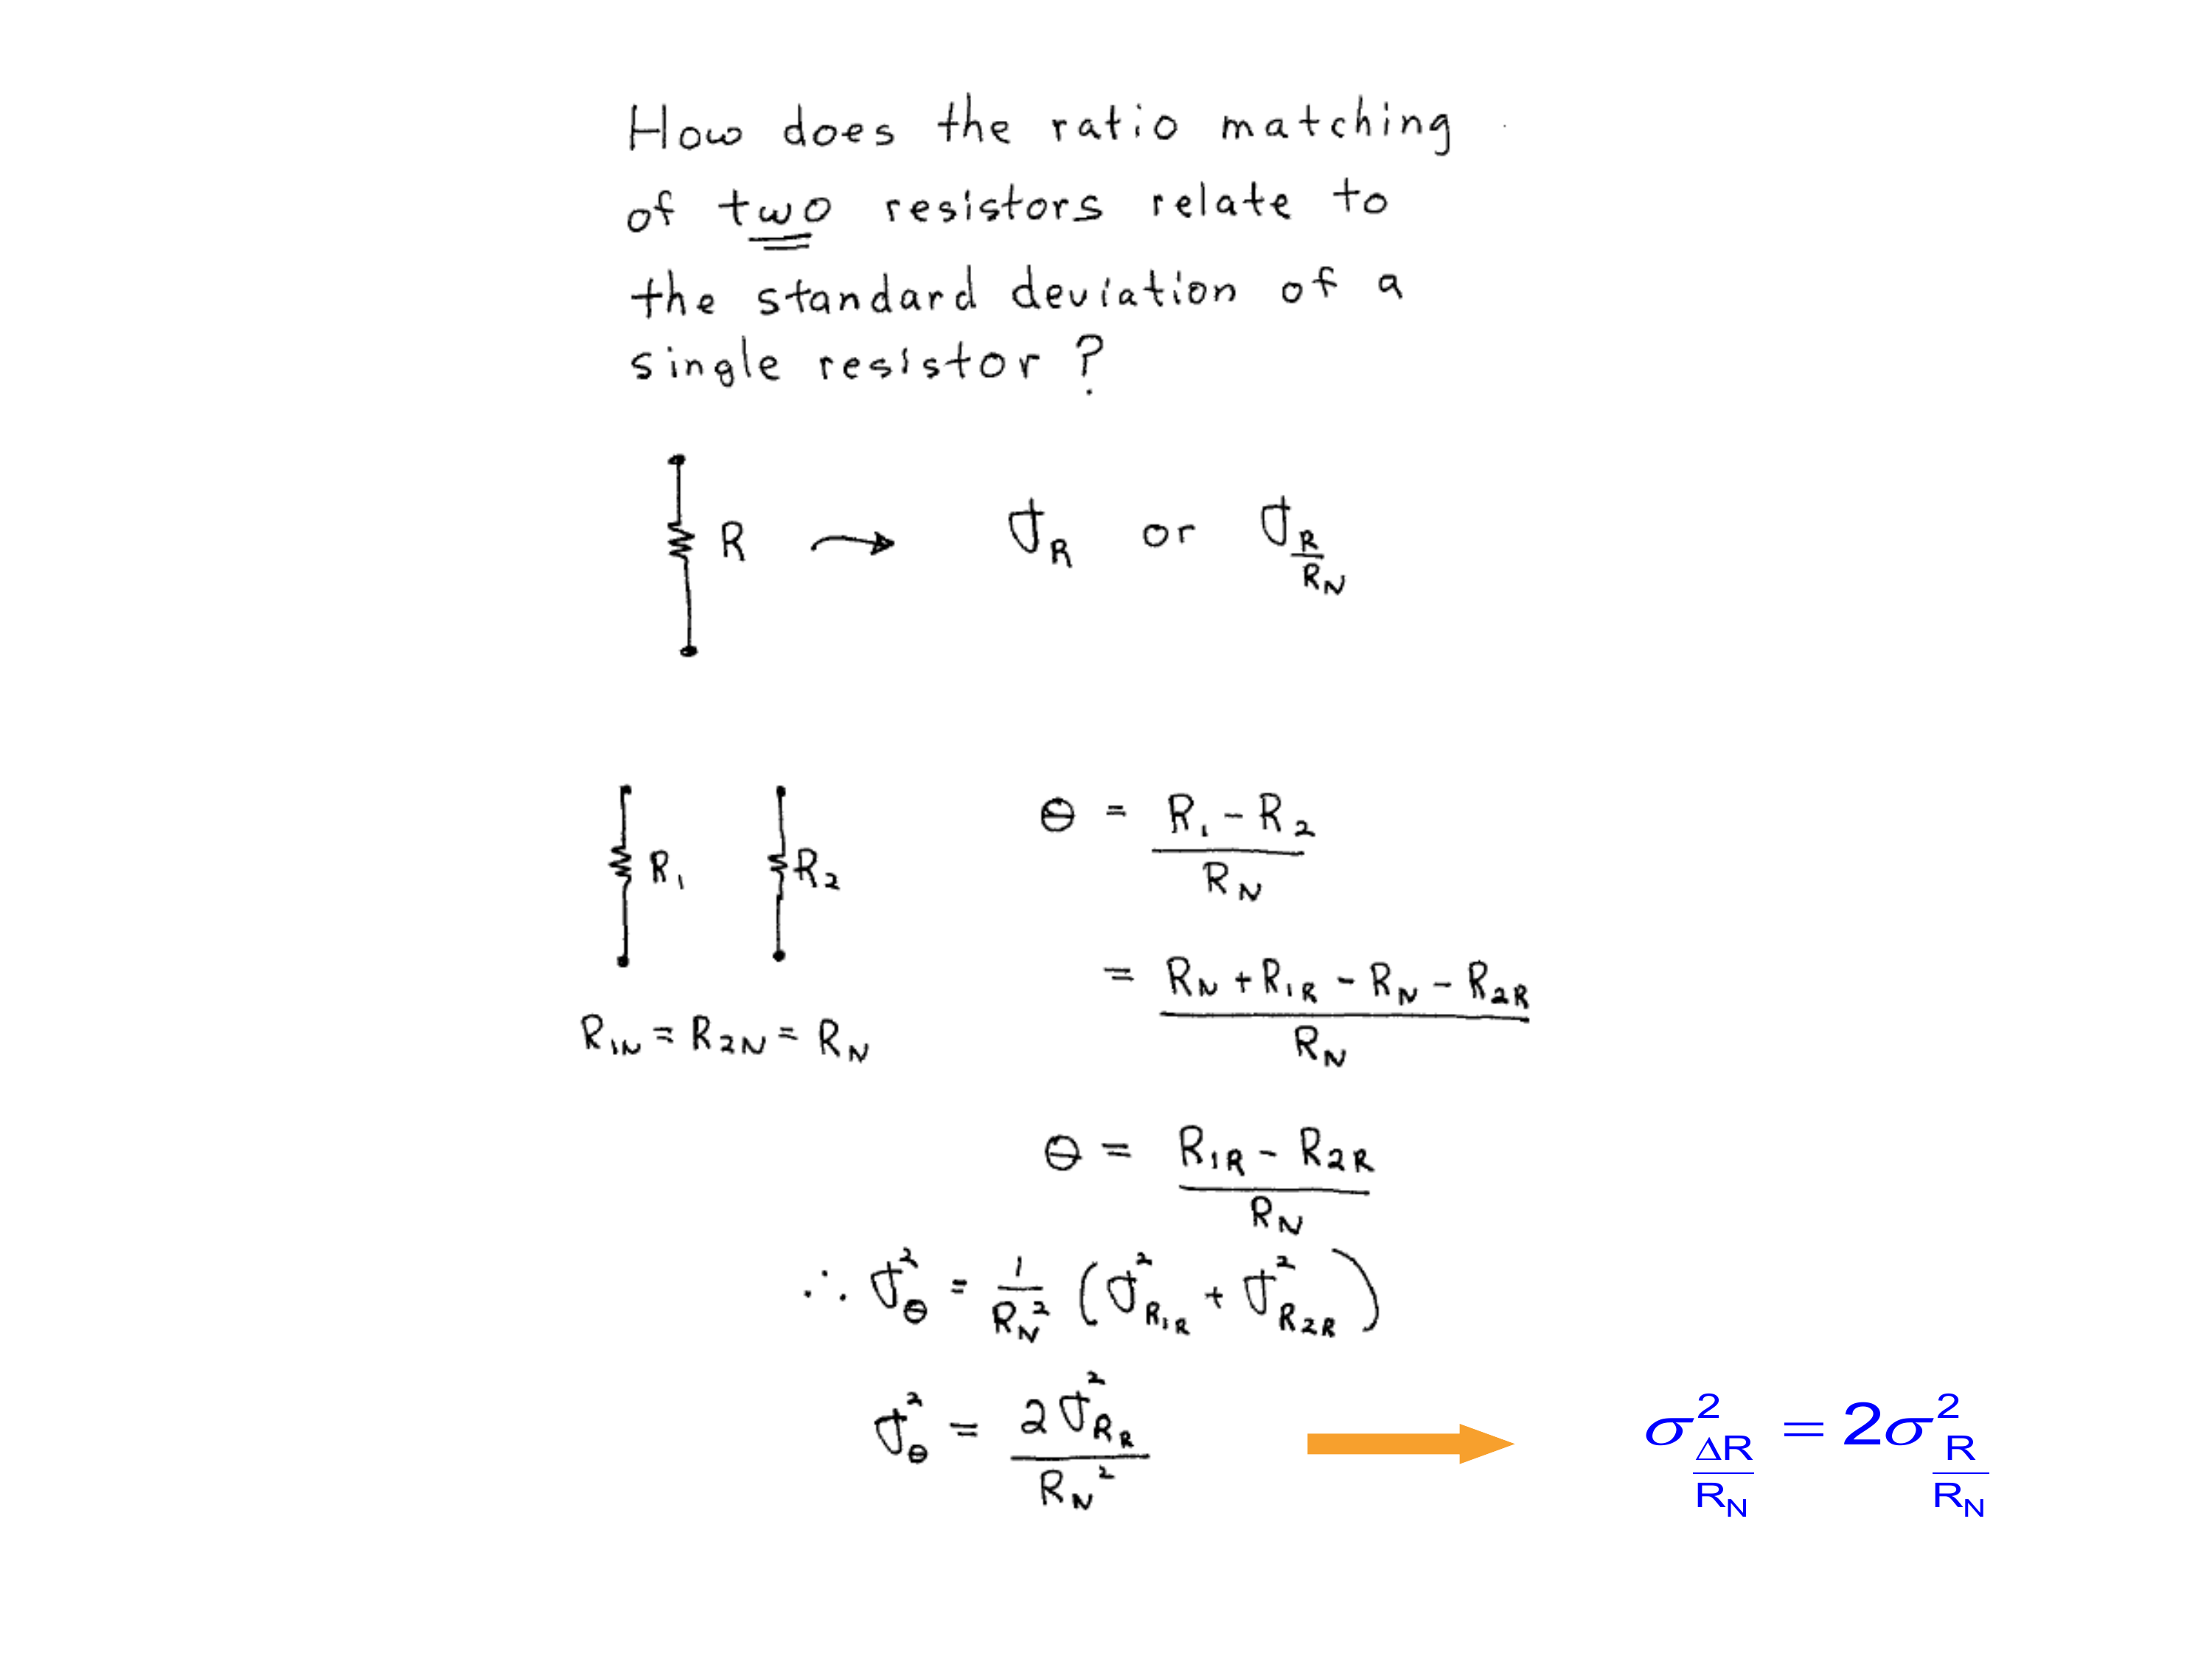 How does the ratio matching
of two resistors relate to
the standard deviation of a
single resistor?
R → σ_R or σ_{R/R_N}
R_1 R_2 θ = (R_1 - R_2)/R_N
= (R_N + R_{1R} - R_N - R_{2R})/R_N
R_{1N} = R_{2N} = R_N
θ = (R_{1R} - R_{2R})/R_N
∴ σ_θ^2 = 1/R_N^2 (σ_{R_{1R}}^2 + σ_{R_{2R}}^2)
σ_θ^2 = 2σ_{R_R}^2/R_N^2
σ_{ΔR/R_N}^2 = 2σ_{R/R_N}^2